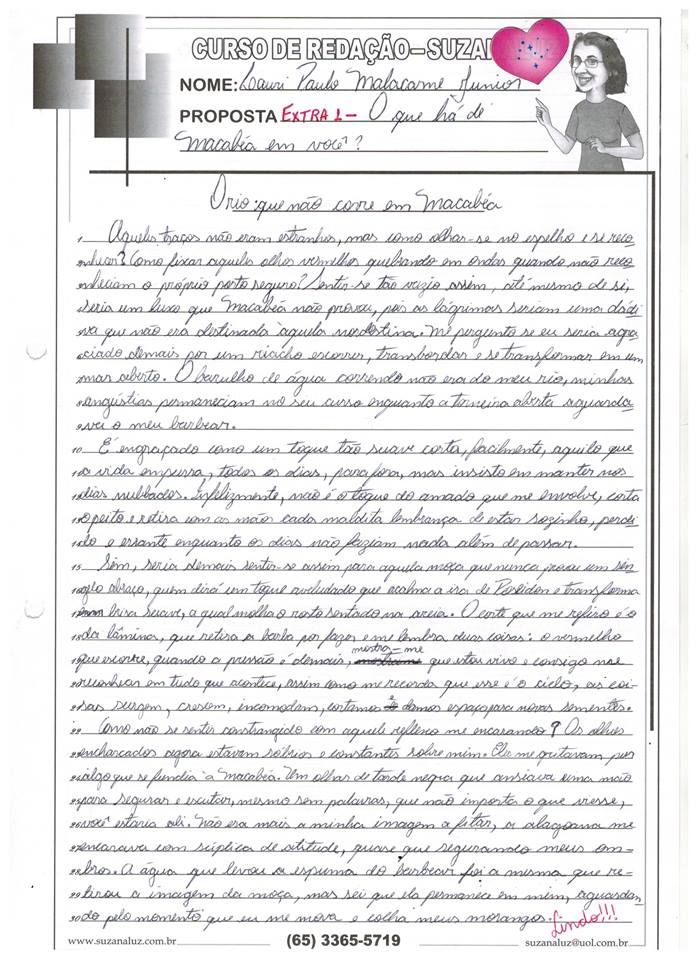 CURSO DE REDAÇÃO–SUZAN
NOME: Lauri Paulo Malacarne Junior
PROPOSTA EXTRA 1 – O que há de
Macabéa em você?
O rio que não corre em Macabéa
1 Aqueles traços não eram estranhos, mas como olhar-se no espelho e se reco
nhecer? Como fixar aqueles olhos vermelhos quebrando em ondas quando não reco
nheciam o próprio porto seguro? Sentir-se tão vazio assim, até mesmo de si,
seria um luxo que Macabéa não provou, pois as lágrimas seriam uma dádi
va que não era destinada àquela nordestina. Me pergunto se eu seria agra
ciado demais por um riacho escorrer, transbordar e se transformar em um
mar aberto. O barulho de água correndo não era do meu rio, minhas
angústias permaneciam no seu curso enquanto a torneira aberta aguarda
va o meu barbear.
10 É engraçado como um toque tão suave corta, facilmente, aquilo que
a vida empurra, todos os dias, para fora, mas insisto em manter nos
dias nublados. Infelizmente, não é o toque do amado que me envolve, corta
o peito e retira com as mãos cada maldita lembrança de estar sozinho, perdi
do e errante enquanto os dias não faziam nada além de passar.
15 Sim, seria demais sentir-se assim para aquela moça que nunca provou um sin
gelo abraço, quem dirá um toque aveludado que acalma a ira de Poseidon e transforma
em brisa suave, a qual molha o rosto sentado na areia. O corte que me refiro é o
da lâmina, que retira a barba por fazer e me lembra duas coisas: o vermelho
que escorre, quando a pressão é demais, mostra-me que estou vivo e consigo me
reconhecer em tudo que acontece, assim como me recorda que esse é o ciclo, as coi
sas surgem, crescem, incomodam, cortamos e damos espaço para novas sementes.
22 Como não se sentir constrangido com aquele reflexo me encarando? Os olhos
encharcados agora estavam sóbrios e constantes sobre mim. Eles me gritavam por
algo que se fundia à Macabéa. Um olhar de tarde negra que ansiava uma mão
para segurar e escutar, mesmo sem palavras, que não importa o que viesse,
você estaria ali. Não era mais a minha imagem a fitar, a alagoana me
encarava com súplica de atitude, quase que segurando meus om-
bros. A água que levou a espuma do barbear foi a mesma que re-
tirou a imagem da moça, mas sei que ela permanece em mim, aguardan
30 do pelo momento que eu me mova e colha meus morangos. Lindo!!!
www.suzanaluz.com.br (65) 3365-5719 suzanaluz@uol.com.br